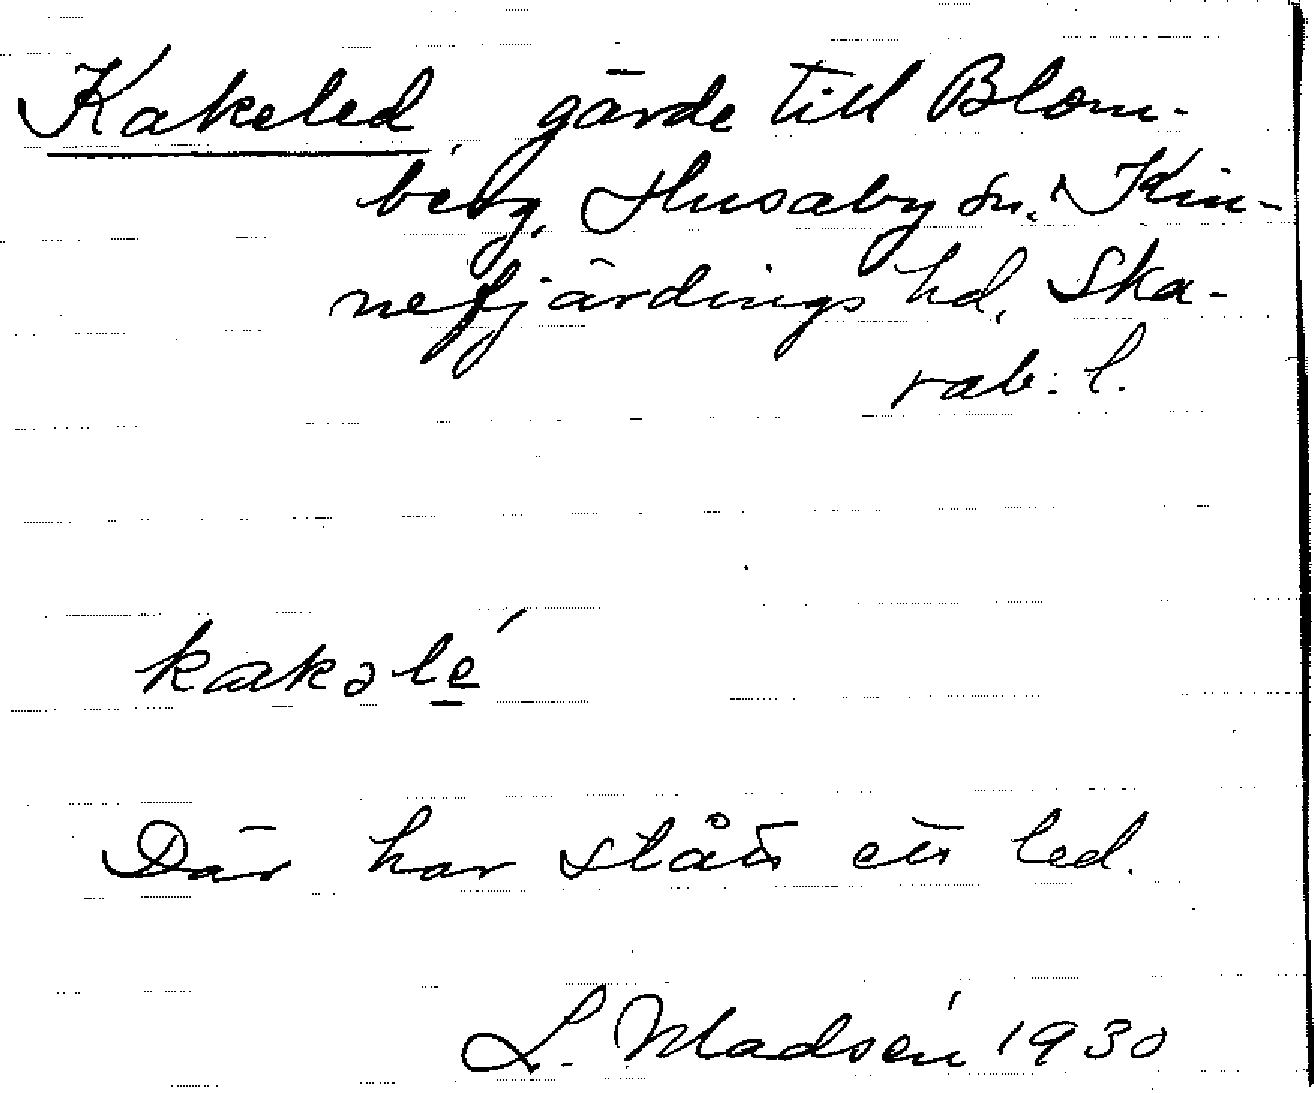 Kakeled gärde till Blom-
berg, Husaby sn, Kin-
nefjärdings hd, Ska-
rab. l.
kakəle̲´
Där har stått ett led.
L. Madsén 1930